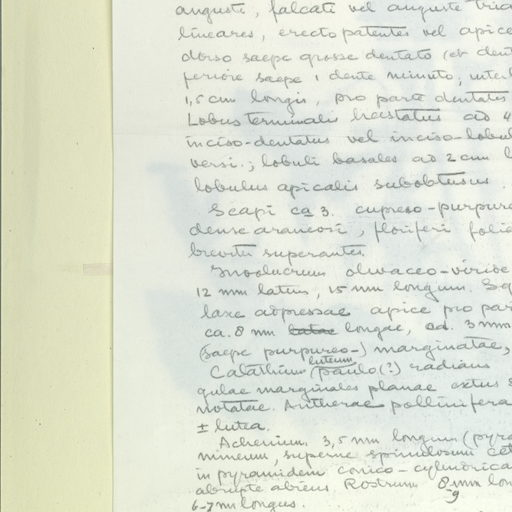 angusti, falcati vel anguste
lineares, erecto patentes vel apice
dorso saepe grosse dentato (et
feriore saepe 1 dente minuto,
1,5 cm longis, pro parte dentatis
Lobus terminalis hastatus ad 4
inciso-dentatus vel inciso-lobu
versi.; lobuli basales ad 2 cm l
lobulus apicalis subobtusus.
Scapi ca 3. cupreo-purpure
dense araneosi, floriferi folia
breviter superantes.
Involucrum olivaceo-viride
12 mm latum, 15 mm longum. Sq
laxe adpressae apice pro par
ca. 8 mm latae longae, ad. 3 mm
(saepe purpureo-) marginatae,
luteum
Calathium (paulo (?) radians
gulae marginales planae extus s
notatae. Antherae pollinifera
± lutea.
Achenium 3,5 mm longum (pyra
mineum, superne spinulosum cet
in pyramidem conico-cylindrica
abrupte abiens Rostrum 8-9 mm lon
6-7 mm longus.